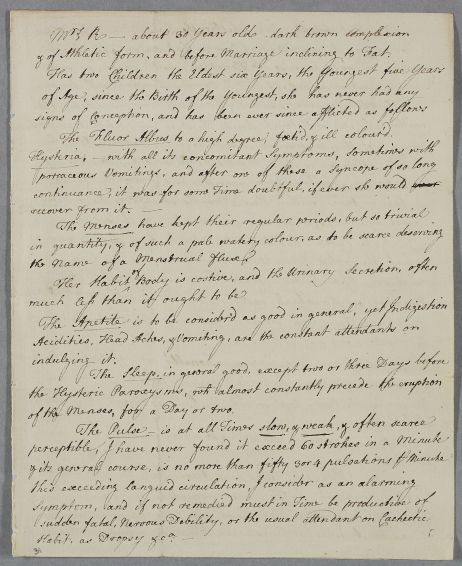 Mrs. R — about 30 Years old. dark brown complexion
& of Athletic form, and before Marriage inclining to Fat.
Has two Children the Eldest six Years, the Youngest five Years
of Age; since the Birth of the Youngest, she has never had any
signs of Conception, and has been ever since afflicted as follows
The Fluor Albus to a high degree; foetid, & ill colour'd.
Hysteria, — with all its concomitant Symptoms, sometimes with
porraceous Vomitings, and after one of these a Syncope of so long
continuance; it was for some Time doubtful, if ever she would
recover from it. —
The Menses have kept their regular periods, but so trivial
in quantity, & of such a pale watery colour, as to be scarce deserving
the Name of a Menstrual flux.
Her Habit of Body is costive, and the Urinary Secretion, often
much less than it ought to be
The Apetite is to be consider'd as good in general, yet Indigestion
Acidities, Head Aches, & Vomiting, are the constant attendants on
indulging it.
The Sleep in general good, except two or three Days before
the Hysteric Paroxysms, wh. almost constantly precede the eruption
of the Menses, for a Day or two.
The Pulse — is at all Times slow, & weak, & often scarce
perceptible, I have never found it exceed 60 strokes in a Minute
& its general course, is no more than fifty 3 or 4 pulsations pr Minute
this exceeding languid circulation, I consider as an alarming
Symptom, and if not remedied must in Time be productive of
sudden fatal, Nervous Debility, or the usual attendant on Cachectic
Habit, as Dropsy &ca —